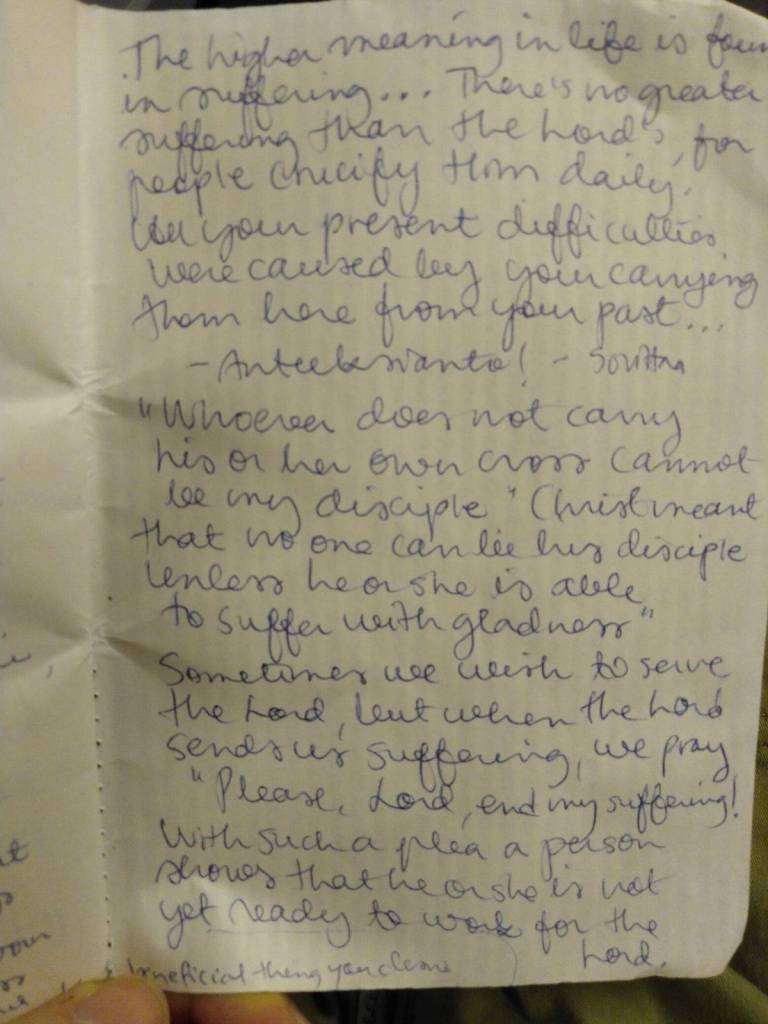 The higher meaning in life is foun
in suffering... There's no greater
suffering than the Lord's, for
people crucify Him daily.
your present difficulties
were caused by your carrying
them here from your past...
"Whoever does not carry
his or her own cross cannot
be my disciple" Christ meant
that no one can be his disciple
unless he or she is able
to suffer with gladness"
Sometimes we wish to serve
the Lord, but when the Lord
sends us suffering, we pray
"Please, Lord, end my suffering!
With such a plea a person
shows that he or she is not
yet ready to work for the
Lord.
beneficial thing you